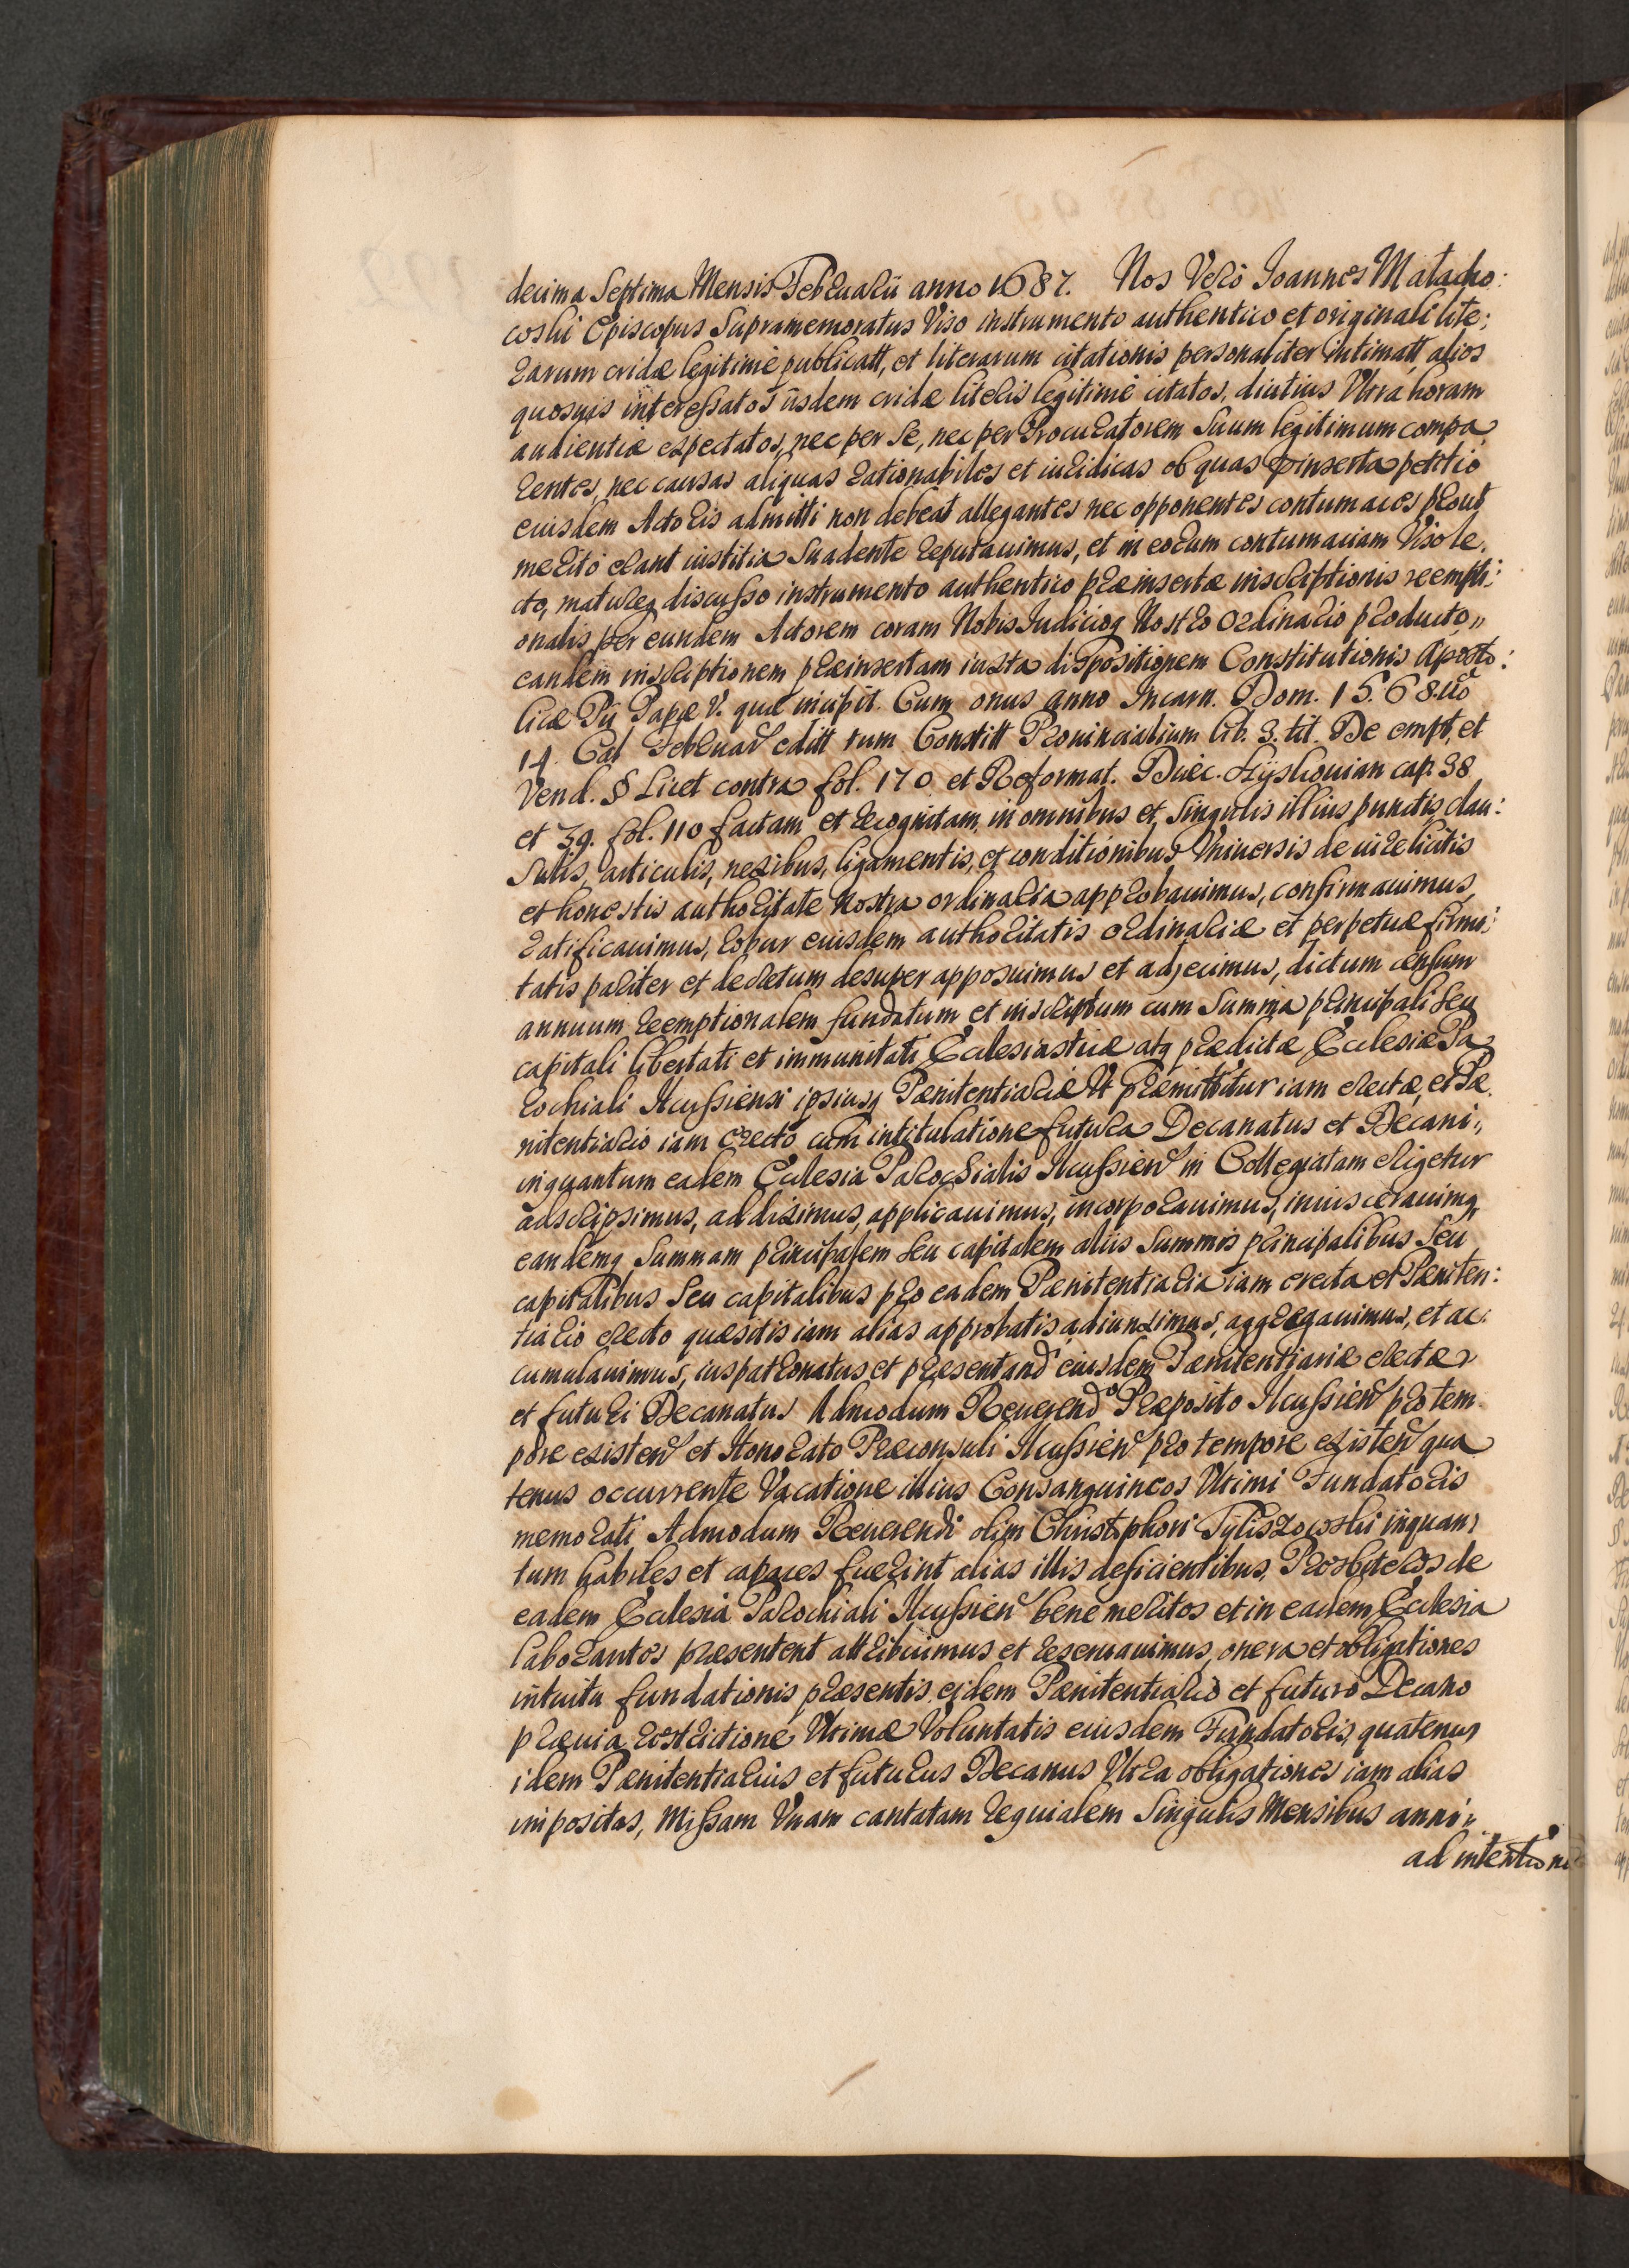 decima Septima Mensis Februarii anno 1687. Nos Verò Joannes Małacho:
coski Episcopus Supramemoratus Viso instrumento authentico et originali lite:
rarum cridæ legitimè publicatt, et literarum citationis personaliter intimatt, alios
quosuis interessatos iisdem cridæ literis legitimè citatos, diutius Vltra horam
audientiæ expectatos, nec per se, nec per Procuratorem Suum legitimum compa
rentes, nec causas aliquas rationabiles et iuridicas ob quas præinserta petitio
eiusdem Actoris admitti non debeat allegantes nec opponentes contumaces prout
meritò erant iustitia Suadente reputauimus, et in eorum contumaciam Viso le,
cto, matureq discusso instrumento authentico præinsertæ inscriptionis reempti:
onalis per eundem Actorem coram Nobis Iudicioq Nostro Ordinario producto,,
eandem inscriptionem præinsertam iuxta dispositionem Constitutionis Aposto:
licæ Pij Papæ V. quæ incipit. Cum onus anno Incarn. Dom. 1568uo
14. Cal Februar editt tum Constitt Prouincialium lib. 3. tit. De empt, et
Vend. § Licet contra fol. 170 et Reformat. Duec. Kÿskouian cap. 38
et 39. fol. 110 factam et recognitam, in omnibus et Singulis illius punctis, clau:
sulis, articulis, nexibus, ligamentis, et conditionibus Vniuersis de iure licitis
et honestis authoritate Nostra ordinaria approbauimus, confirmauimus,
ratificauimus, robur eiusdem authoritatis ordinariæ et perpetuæ firmi:
tatis pariter et decretum desuper apposuimus et adjecimus, dictum censum
annuum reemptionalem fundatum et inscriptum cum Summa principali seu
capitali libertati et immunitati Ecclesiasticæ atq prædictæ Ecclesiæ Pa
rochiali Ilcussiensi ipsiusq Pænitentiariæ Vt præmittitur iam erectæ, et Pæ.
nitentiario iam erecto cum intitulatione futura Decanatus et Decani,,
inquantum eadem Ecclesia Parochialis Ilcussien in Collegiatam erigetur
adscripsimus, addiximus, applicauimus, incorporauimus, inuiscerauimq,
eandemq Summam principalem seu capitalem aliis Summis principalibus Seu
capitalibus Seu capitalibus pro eadem Pænitentiaria iam erecta et Pæniten:
tiario erecto quæsitis iam alias approbatis adiunximus, aggregauimus, et ac.
cumulauimus, ius patronatus et præsentand eiusdem Pænitentiariæ erectæ
et futuri Decanatus Admodum Reuerendo Præposito Ilcussien pro tem
pore existen et Honorato Præconsuli Ilcussien pro tempore existen qua
tenus occurrente Vacatione illius Consanguineos Vltimi Fundatoris
memorati Admodum Reuerendi olim Christophori Tyliszowski inquan,
tum habiles et capaces fuerint alias illis deficientibus. Prosbiteros de
eadem Ecclesia Parochiali Ilcussien bene meritos et in eadem Ecclesia
laborantes præsentent attribuimus et reseruauimus, onera et obligationes
intuitu fundationis præsentis ejdem Pænitentiario et futuro Decano
præuia restrictione Vltimæ Voluntatis eiusdem Fundatoris, quatenus
idem Pænitentiarius et futurus Decanus Vltra obligationes iam alias
impositas, Missam Vnam cantatam requialem Singulis Mensibus anni,,
ad intentione